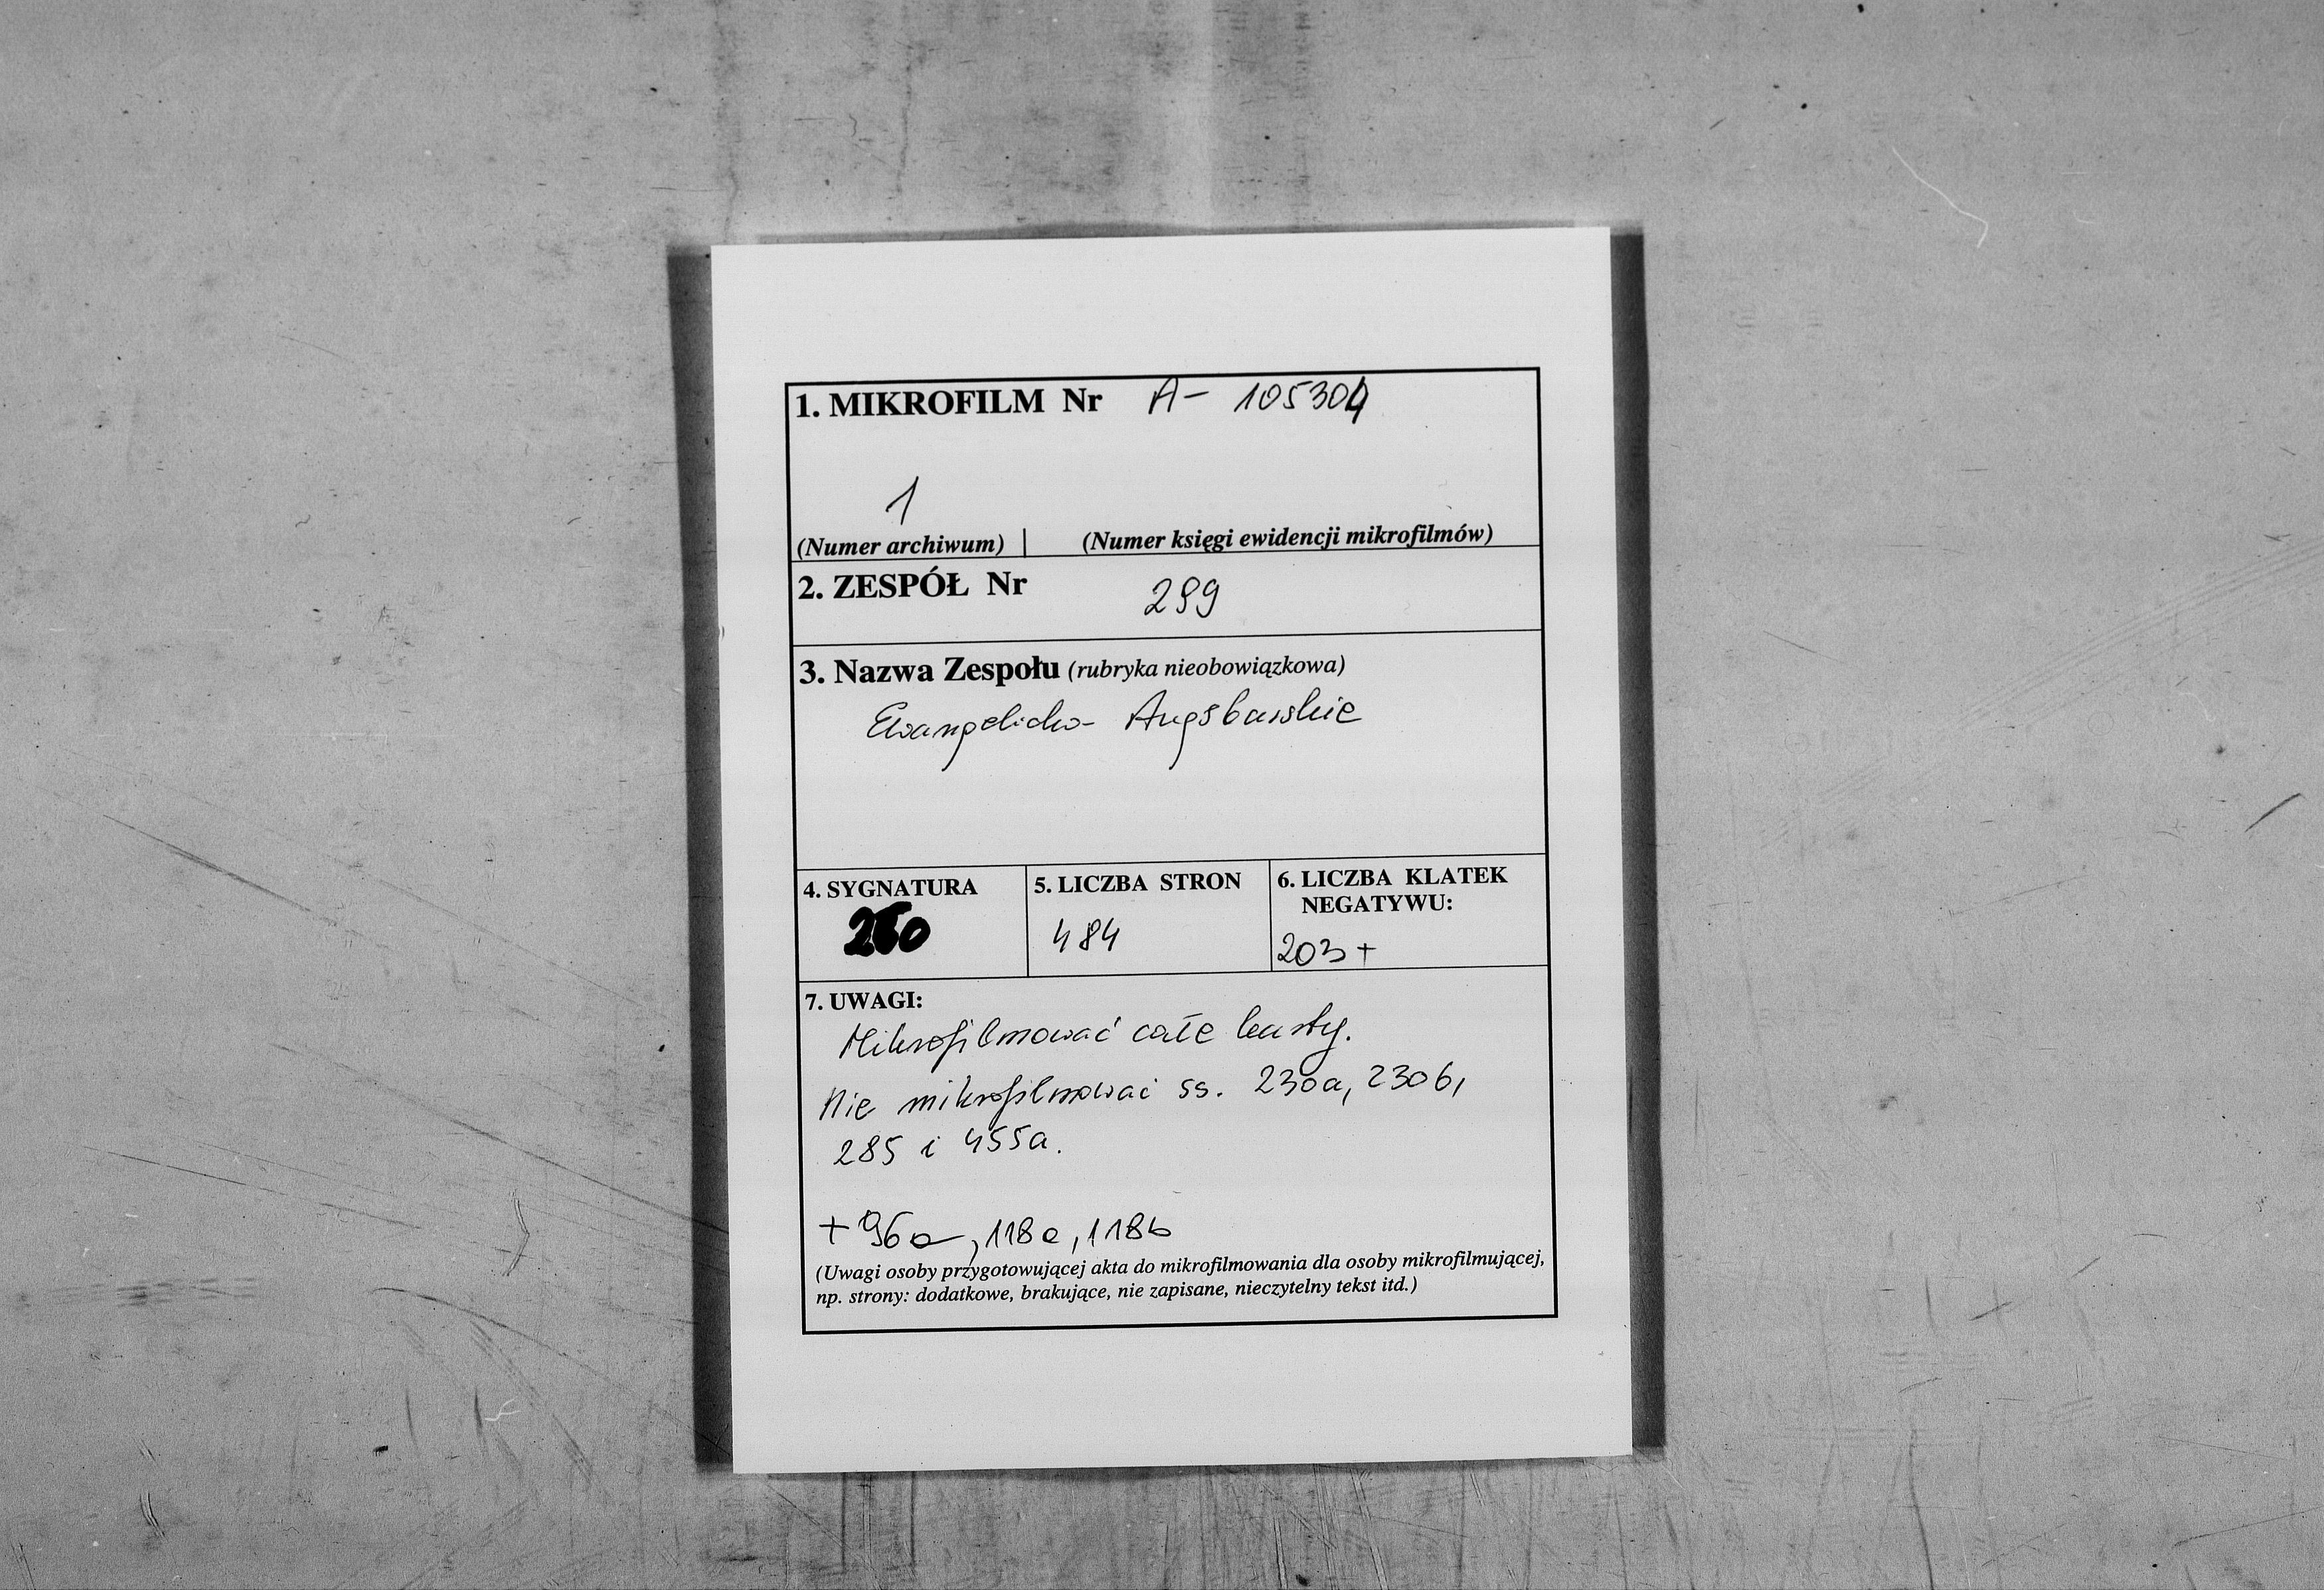 1. MIKROFILM Nr A- 105304
1
(Numer archiwum) | (Numer księgi ewidencji mikrofilmów)
2. ZESPÓŁ Nr 299
3. Nazwa Zespołu (rubryka nieobowiązkowa)
Ewangelicko- Augsburskie
4. SYGNATURA 5. LICZBA STRON 6. LICZBA KLATEK
NEGATYWU:
260 484 203+
7. UWAGI:
Mikrofilmować całe karty.
Nie mikrofilmować ss. 230a, 230b,
285 i 455a.
+ 96a, 118a, 118b
(Uwagi osoby przygotowującej akta do mikrofilmowania dla osoby mikrofilmującej,
np. strony: dodatkowe, brakujące, nie zapisane, nieczytelny tekst itd.)